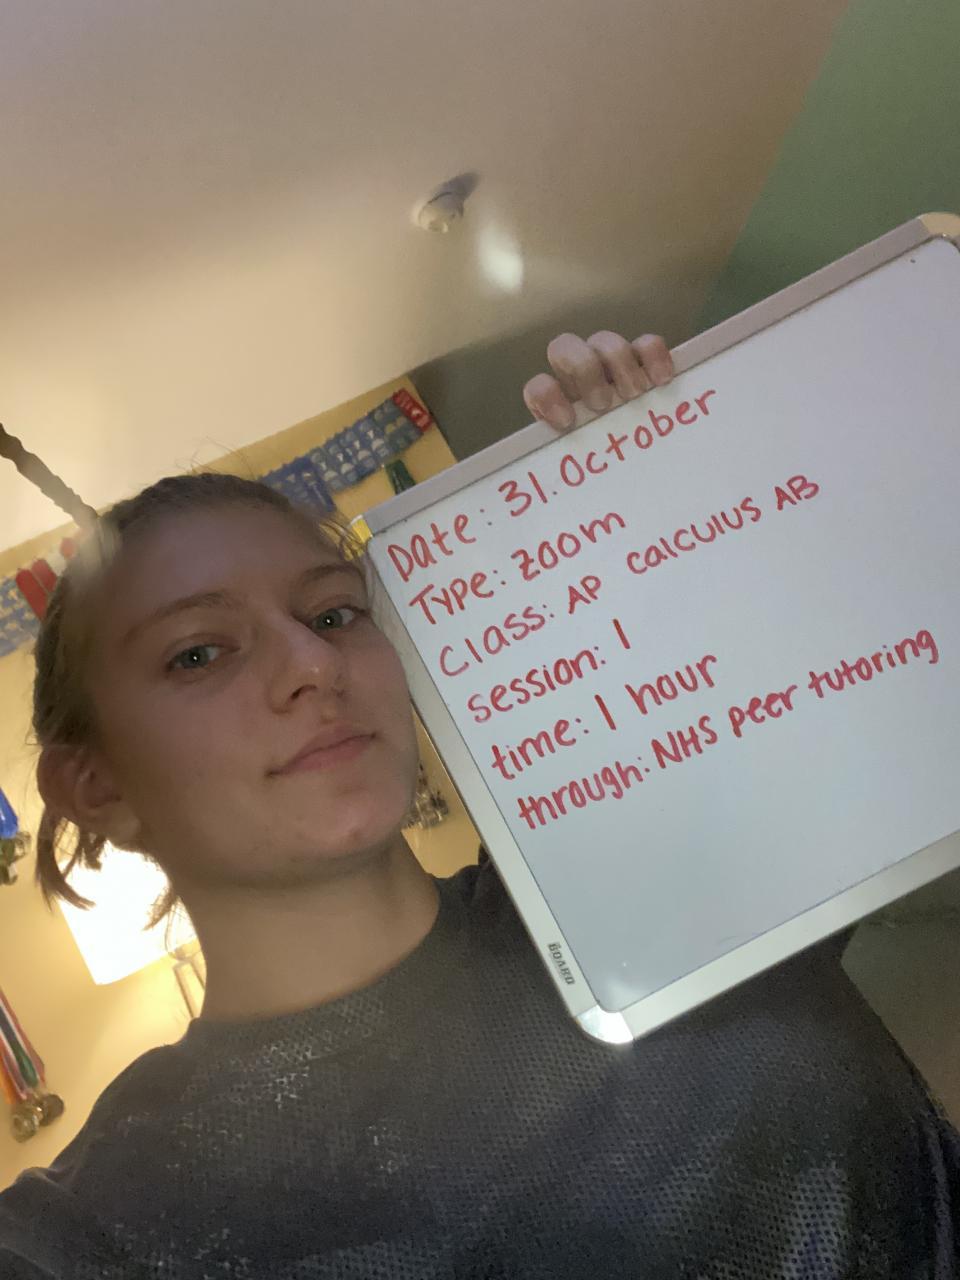 Date: 31. October
Type: zoom
Class: AP calculus AB
session: 1
time: 1 hour
through: NHS peer tutoring
BOARD